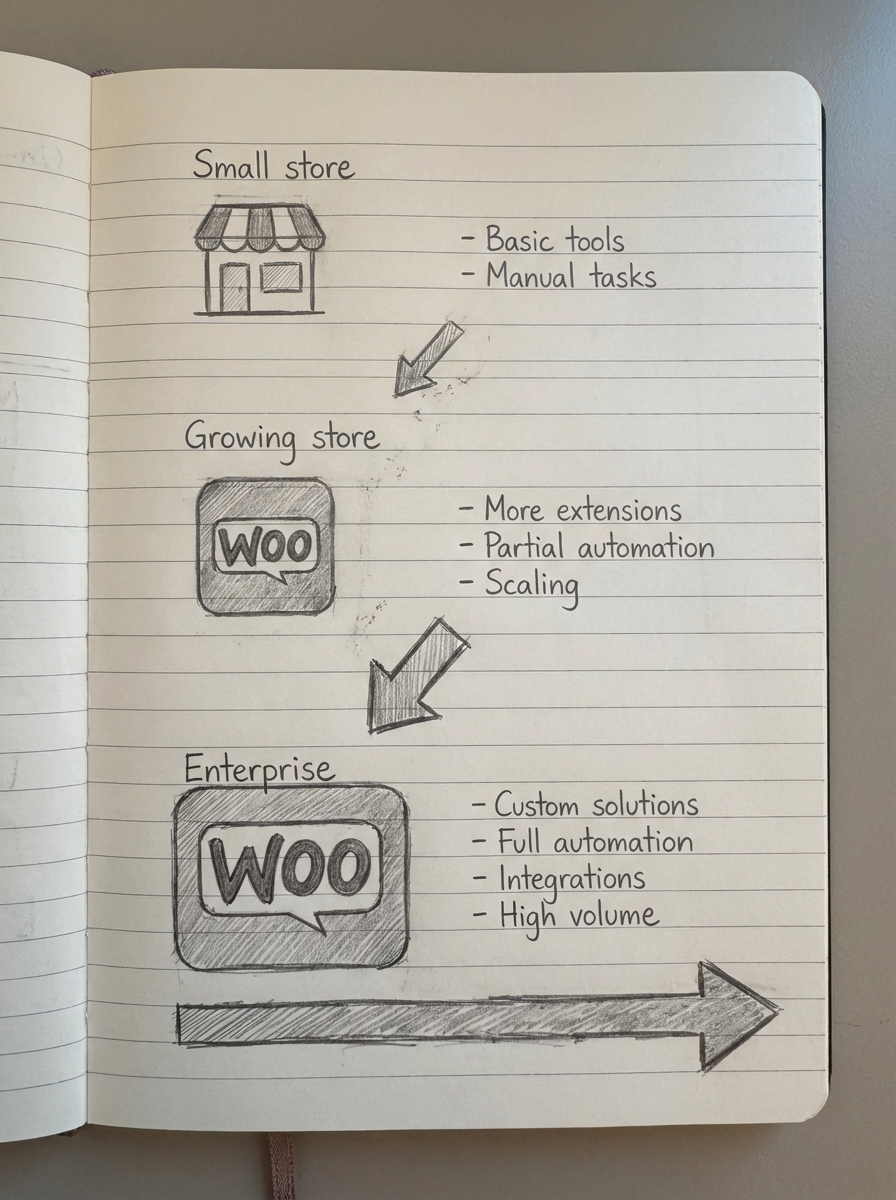 Small store
- Basic tools
- Manual tasks
Growing store
WOO
- More extensions
- Partial automation
- Scaling
Enterprise
WOO
- Custom solutions
- Full automation
- Integrations
- High volume